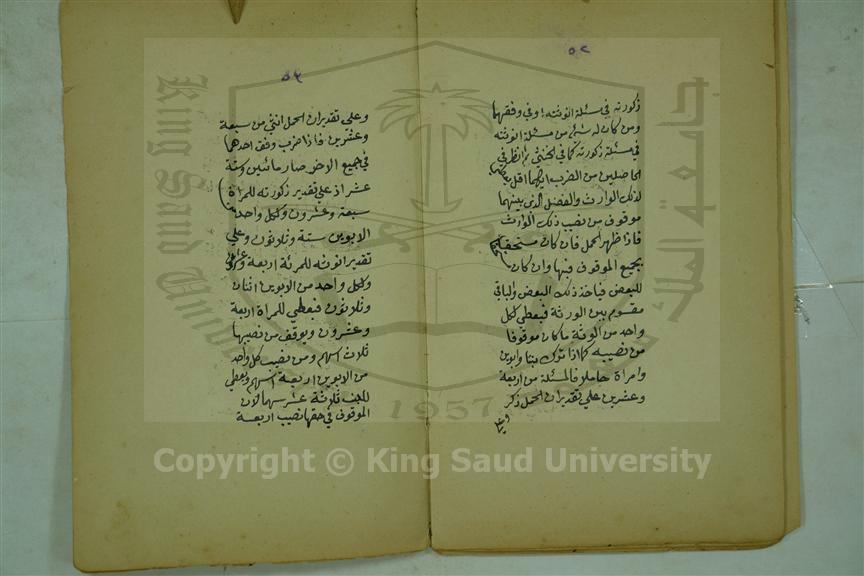 ٥٢
ذكورته في مسئلة انوثته او في وفقهما
ومن كان له شئ من مسئلة انوثته
في مسئلة ذكورته كما في الخنثى ثم انظر في
الحاصلين من الضرب ايهما اقل
لذلك الوارث والفضل الذي بينهما
موقوف من نصيب ذلك الوارث
فاذا ظهر الحمل فان كان مستحقا
بجميع الموقوف فبها وان كان
للبعض فياخذ ذلك البعض والباقي
مقسوم بين الورثة فيعطى لكل
واحد من الورثة ما كان موقوفا
من نصيبه كما اذا ترك بنتا وابوين
وامراة حاملا فالمسئلة من اربعة
وعشرين على تقدير ان الحمل ذكر
وعلى تقدير ان الحمل انثى من سبعة
وعشرين فاذا ضرب وفق احدهما
في جميع الاخر صار مائتين وستة
عشر اذ على تقدير ذكورته للمراة
سبعة وعشرون ولكل واحد من
الابوين ستة وثلاثون وعلى
تقدير انوثته للمرئة اربعة وعشرون
ولكل واحد من الابوين اثنان
وثلاثون فيعطى للمراة اربعة
وعشرون ويوقف من نصيبها
ثلاث اسهم ومن نصيب كل واحد
من الابوين اربعة اسهم ويعطى
للبنت ثلاثة عشر سهما لان
الموقوف في حقها نصيب اربعة
جامعة الملك سعود
King Saud University
1957
Copyright © King Saud University